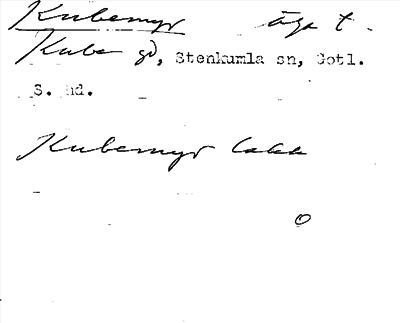 Kubemyr äga t.
Kube gd, Stenkumla sn, Gotl.
S. hd.
Kubemyr